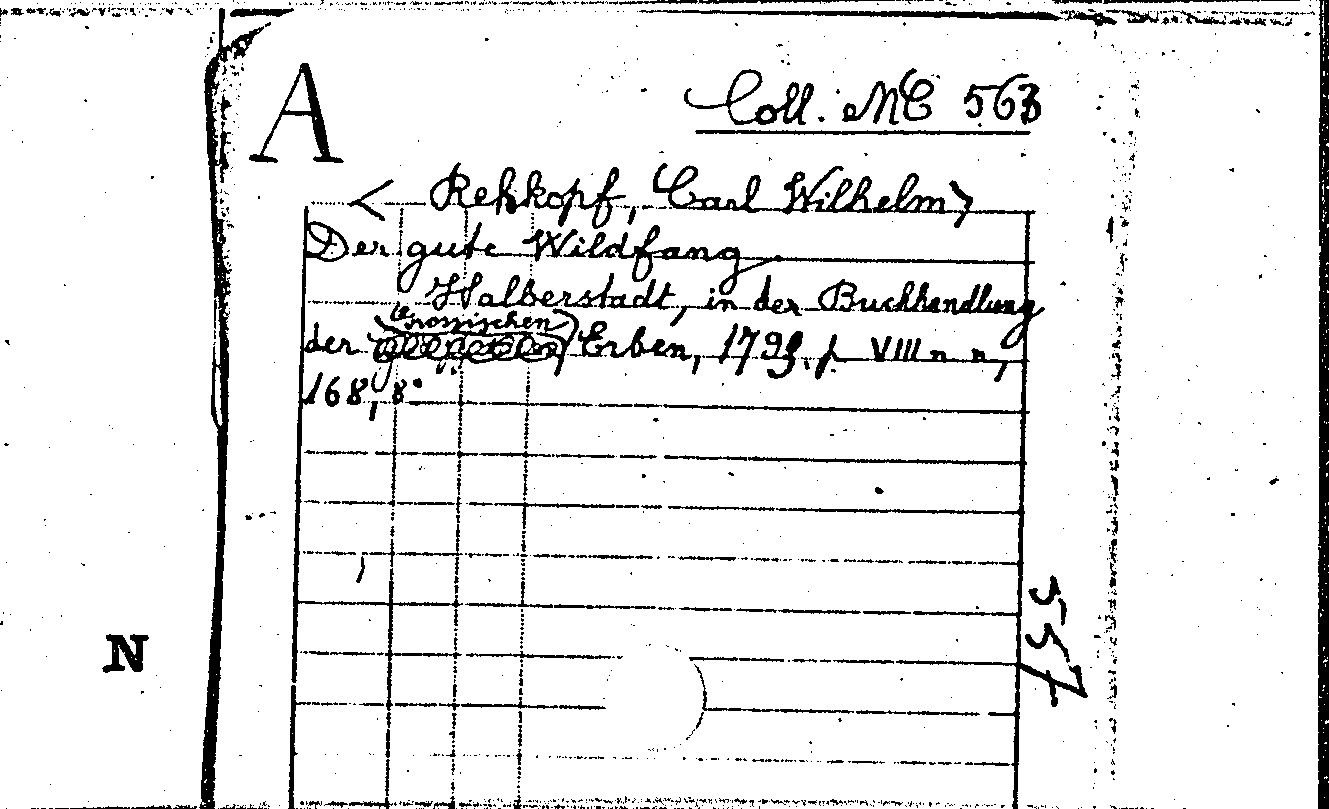 A
Coll. MC 563
< Rehkopf, Carl Wilhelm>
Der gute Wildfang.
Halberstadt, in der Buchhandlung
der Grossischen Erben, 1793. p VIII n n,
168, 8°
557
N